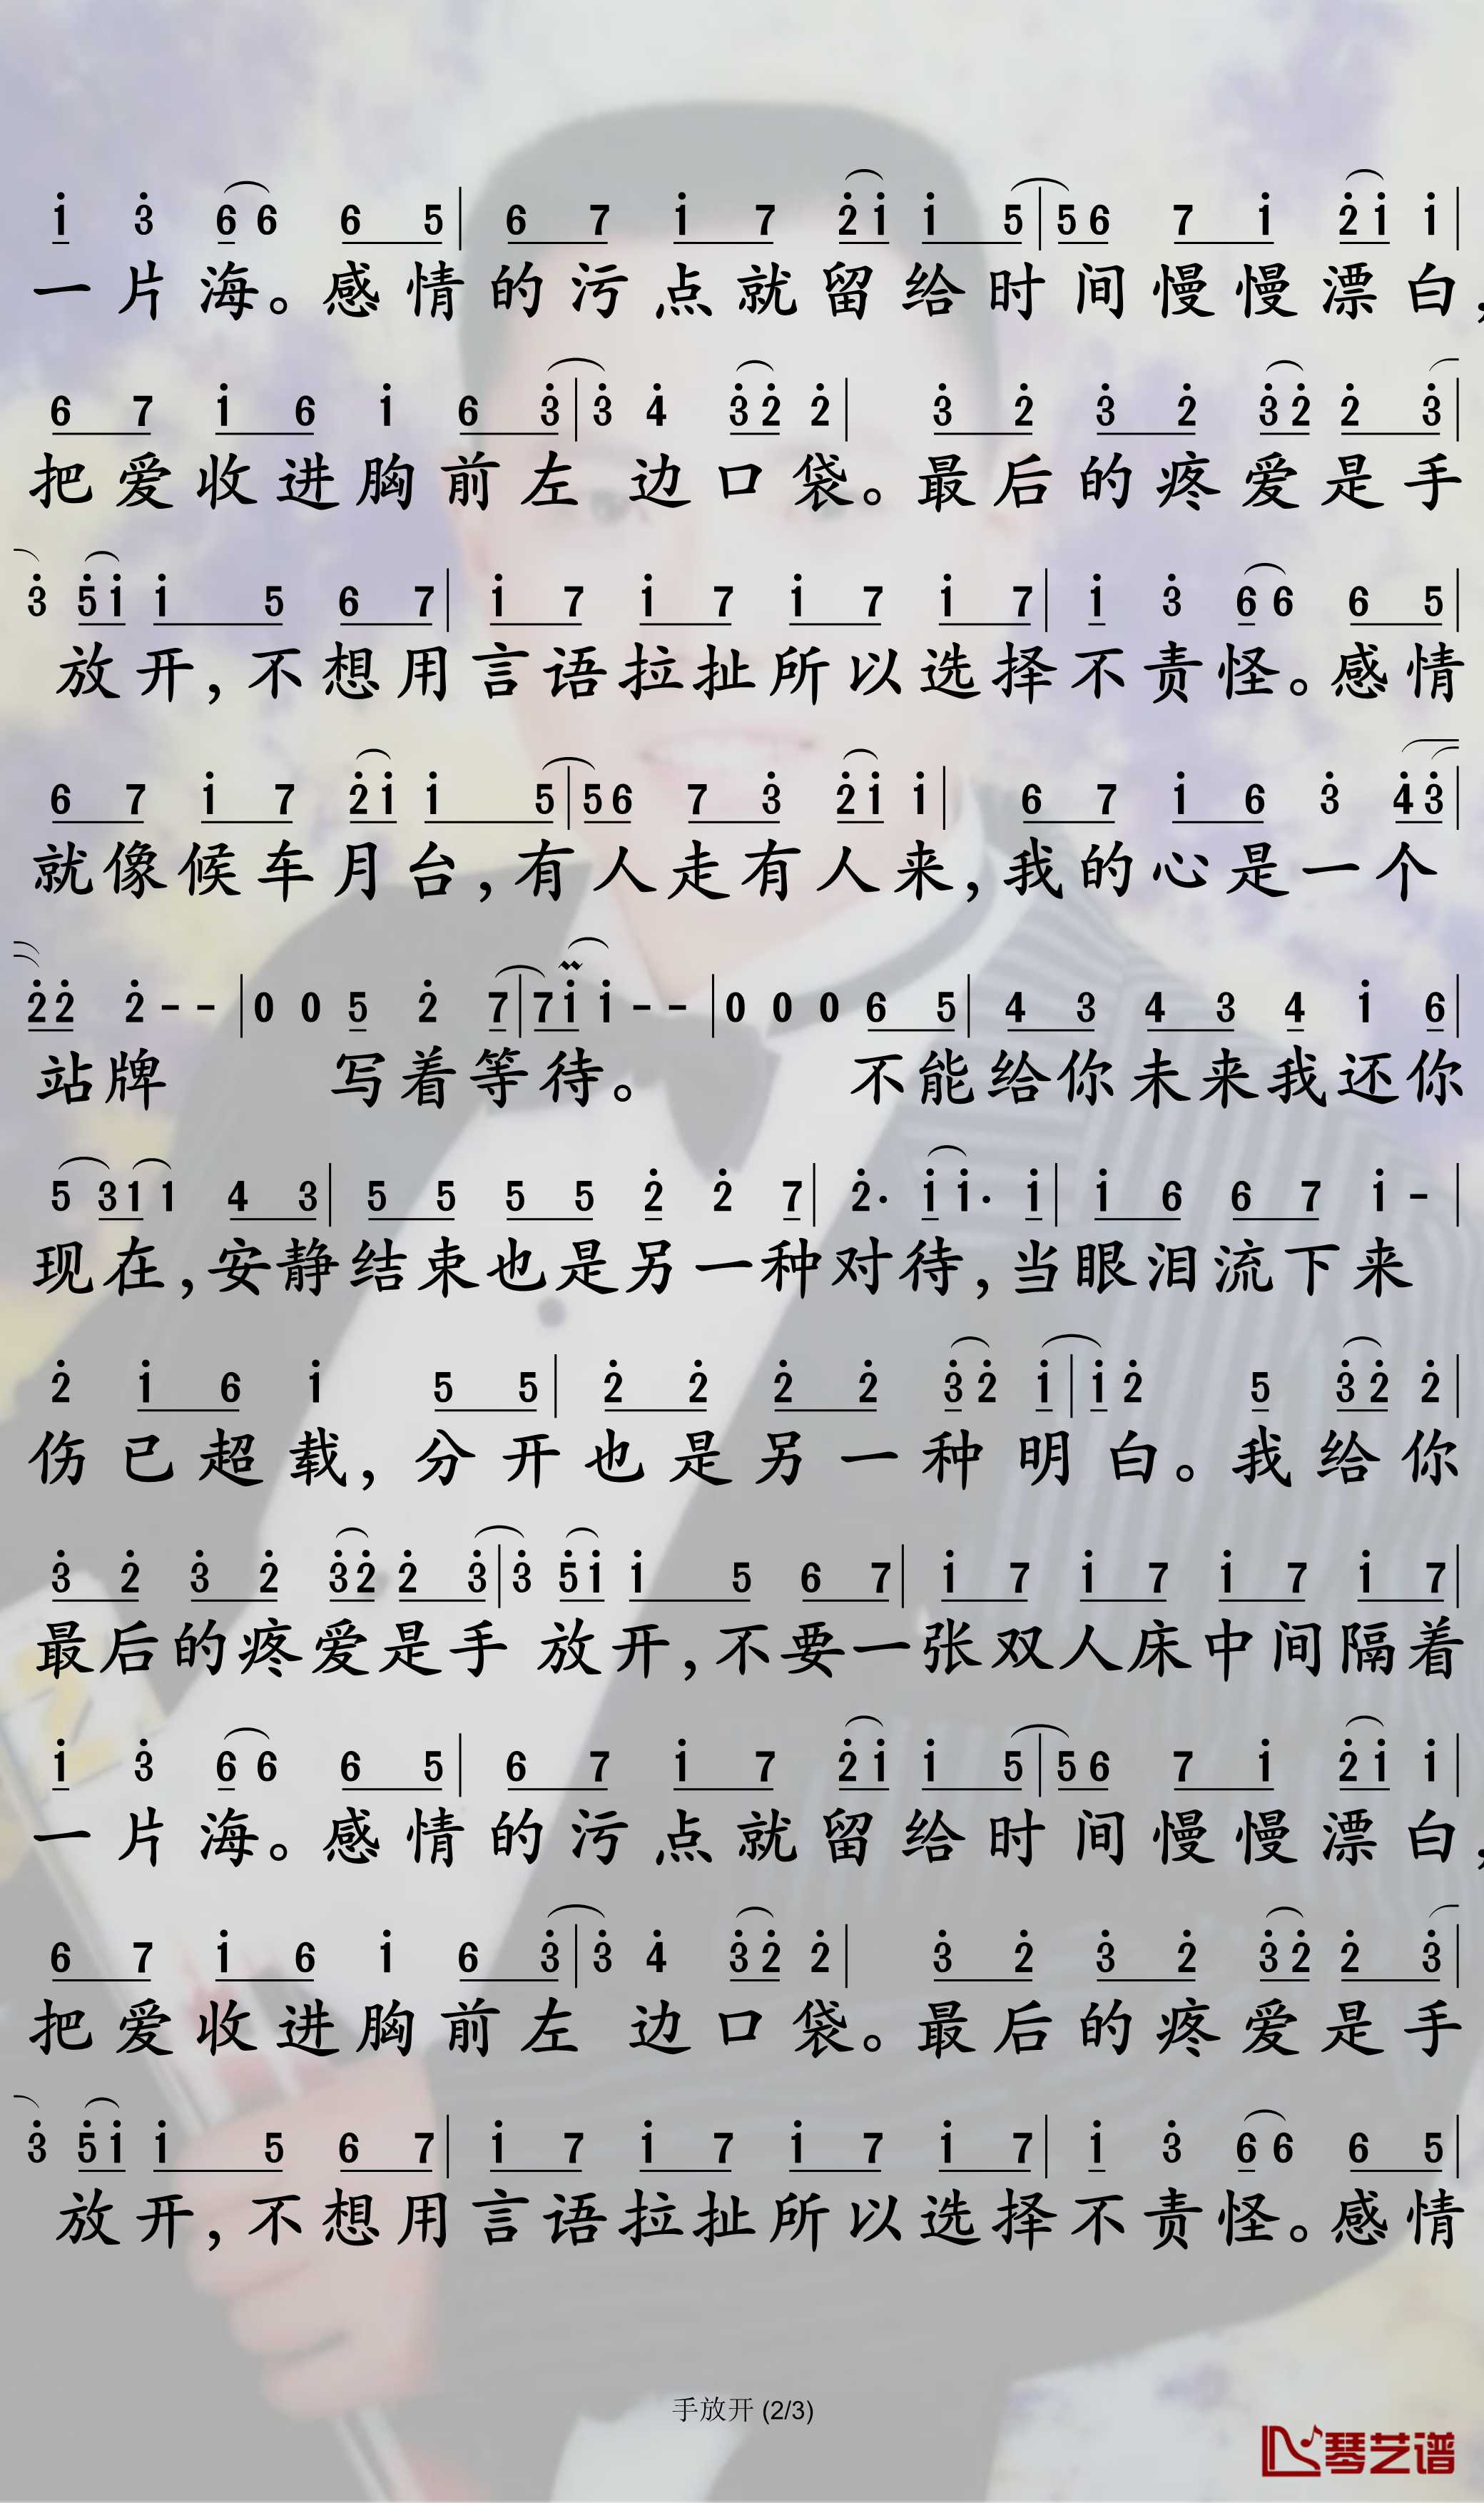 i 3 6 6 6 5 | 6 7 i 7 2 i i 5 | 5 6 7 i 2 i i |
一片海。感情的污点就留给时间慢慢漂白,
6 7 i 6 i 6 3 | 3 4 3 2 2 | 3 2 3 2 3 2 2 3 |
把爱收进胸前左边口袋。最后的疼爱是手
3 5 i i 5 6 7 | i 7 i 7 i 7 i 7 | i 3 6 6 6 5 |
放开,不想用言语拉扯所以选择不责怪。感情
6 7 i 7 2 i i 5 | 5 6 7 3 2 i i | 6 7 i 6 3 4 3 |
就像候车月台,有人走有人来,我的心是一个
2 2 2 - - | 0 0 5 2 7 | 7 i i - - | 0 0 0 6 5 | 4 3 4 3 4 i 6 |
站牌 写着等待。 不能给你未来我还你
5 3 1 1 4 3 | 5 5 5 5 2 2 7 | 2· i i· i | i 6 6 7 i - |
现在,安静结束也是另一种对待,当眼泪流下来
2 i 6 i 5 5 | 2 2 2 2 3 2 i | i 2 5 3 2 2 |
伤已超载,分开也是另一种明白。我给你
3 2 3 2 3 2 2 3 | 3 5 i i 5 6 7 | i 7 i 7 i 7 i 7 |
最后的疼爱是手放开,不要一张双人床中间隔着
i 3 6 6 6 5 | 6 7 i 7 2 i i 5 | 5 6 7 i 2 i i |
一片海。感情的污点就留给时间慢慢漂白,
6 7 i 6 i 6 3 | 3 4 3 2 2 | 3 2 3 2 3 2 2 3 |
把爱收进胸前左边口袋。最后的疼爱是手
3 5 i i 5 6 7 | i 7 i 7 i 7 i 7 | i 3 6 6 6 5 |
放开,不想用言语拉扯所以选择不责怪。感情
手放开 (2/3)
琴艺谱